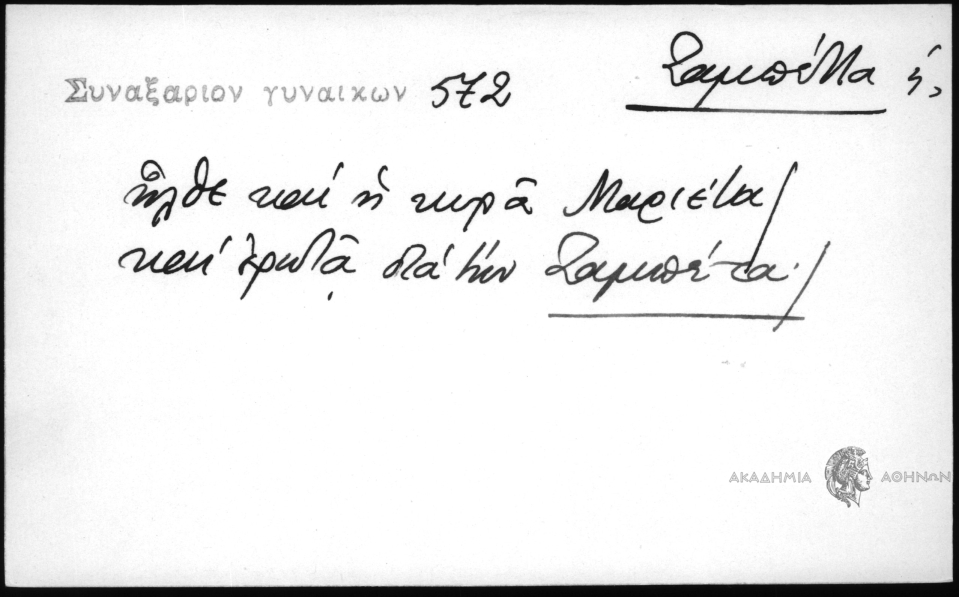 Συναξαριον γυναικων 572
Ζαμπέττα ἡ,
ἦλθε καί ἡ κυρᾶ Μαριέτα/
καί ἐρωτᾷ διά τήν Ζαμπέτα./
ΑΚΑΔΗΜΙΑ ΑΘΗΝΩΝ